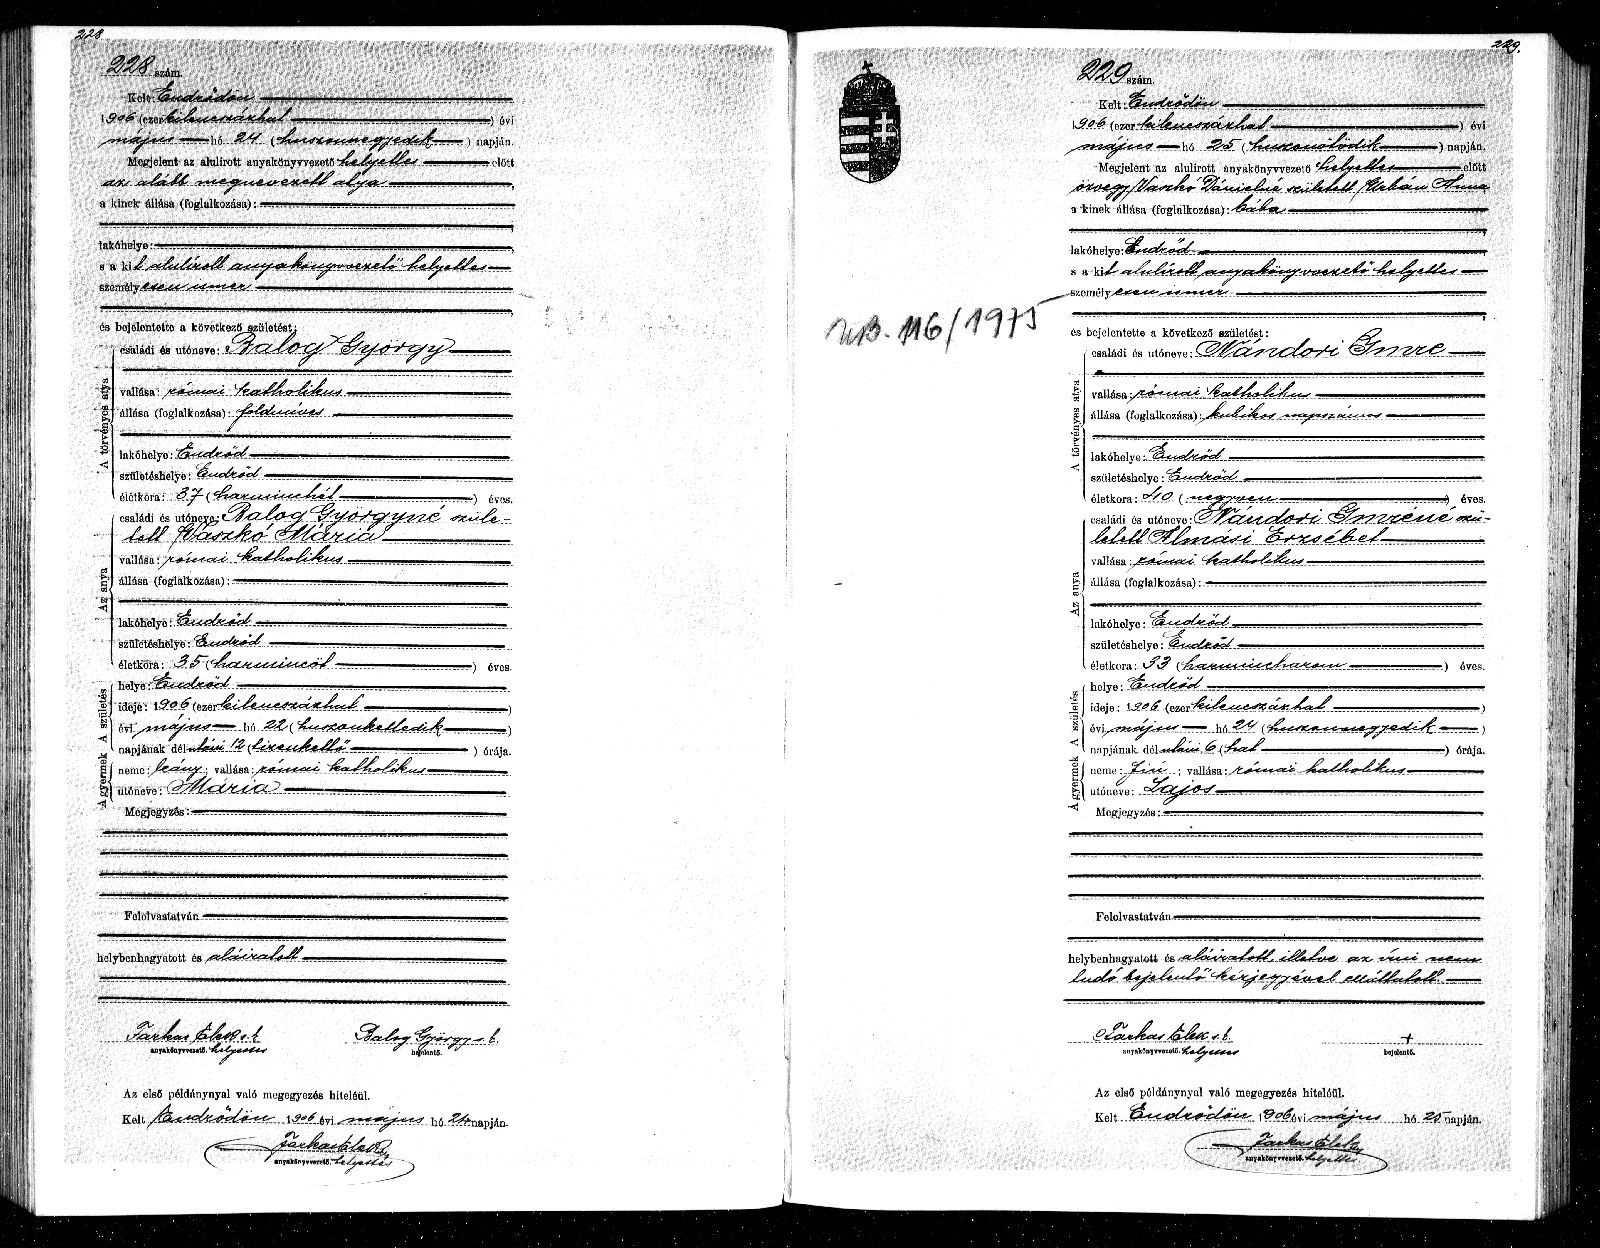 228
228 szám.
Kelt: Endrődön
1906 (ezerkilenczázhat) évi
május hó 24 (huszonnegyedik) napján.
Megjelent az alulirott anyakönyvvezető helyettes előtt
az alább megnevezett atya,
a kinek állása (foglalkozása):
lakóhelye:
s a kit alulírott anyakönyvvezető helyettes
személyesen ismer
és bejelentette a következő születést:
A törvényes atya
családi és utóneve: Balog György
vallása: római katholikus
állása (foglalkozása): földmíves
lakóhelye: Endrőd
születéshelye: Endrőd
életkora: 37 (harminchét) éves.
Az anya
családi és utóneve: Balog Györgyné szüle-
tett Vaszkó Mária
vallása: római katholikus
állása (foglalkozása):
lakóhelye: Endrőd
születéshelye: Endrőd
életkora: 35 (harmincöt) éves.
A születés
helye: Endrőd
ideje: 1906 (ezerkilenczázhat)
évi május hó 22 (huszonkettedik)
napjának délutáni 12 (tizenkettő) órája.
A gyermek
neme: leány; vallása: római katholikus
utóneve: Mária
Megjegyzés:
Felolvastatván
helybenhagyatott és aláíratott
Farkas Elek s.k. Balog György s.k.
anyakönyvvezető. helyettes bejelentő.
Az első példánynyal való megegyezés hiteléül.
Kelt Endrődön 1906 évi május hó 24 napján.
Farkas Elek
anyakönyvvezető. helyettes
229.
229 szám.
Kelt: Endrődön
1906 (ezerkilenczázhat) évi
május hó 25 (huszonötödik) napján.
Megjelent az alulirott anyakönyvvezető helyettes előtt
özvegy Vaszko Dánielné született Urbán Anna
a kinek állása (foglalkozása): bába
lakóhelye: Endrőd
s a kit alulírott anyakönyvvezető helyettes
személyesen ismer
116/1975
és bejelentette a következő születést:
A törvényes atya
családi és utóneve: Nándori Imre
vallása: római katholikus
állása (foglalkozása): kubikos napszámos
lakóhelye: Endrőd
születéshelye: Endrőd
életkora: 40 (negyven) éves.
Az anya
családi és utóneve: Nándori Imréné szü-
letett Almási Erzsébet
vallása: római katholikus
állása (foglalkozása):
lakóhelye: Endrőd
születéshelye: Endrőd
életkora: 33 (harminchárom) éves.
A születés
helye: Endrőd
ideje: 1906 (ezerkilenczázhat)
évi május hó 24 (huszonnegyedik)
napjának délutáni 6 (hat) órája.
A gyermek
neme: fiú; vallása: római katholikus
utóneve: Lajos
Megjegyzés:
Felolvastatván
helybenhagyatott és aláíratott, illetve az írni nem
tudó bejelentő kézjegyével elláttatott.
Farkas Elek s.k. +
anyakönyvvezető. helyettes bejelentő.
Az első példánynyal való megegyezés hiteléül.
Kelt Endrődön 1906 évi május hó 25 napján.
Farkas Elek
anyakönyvvezető. helyettes